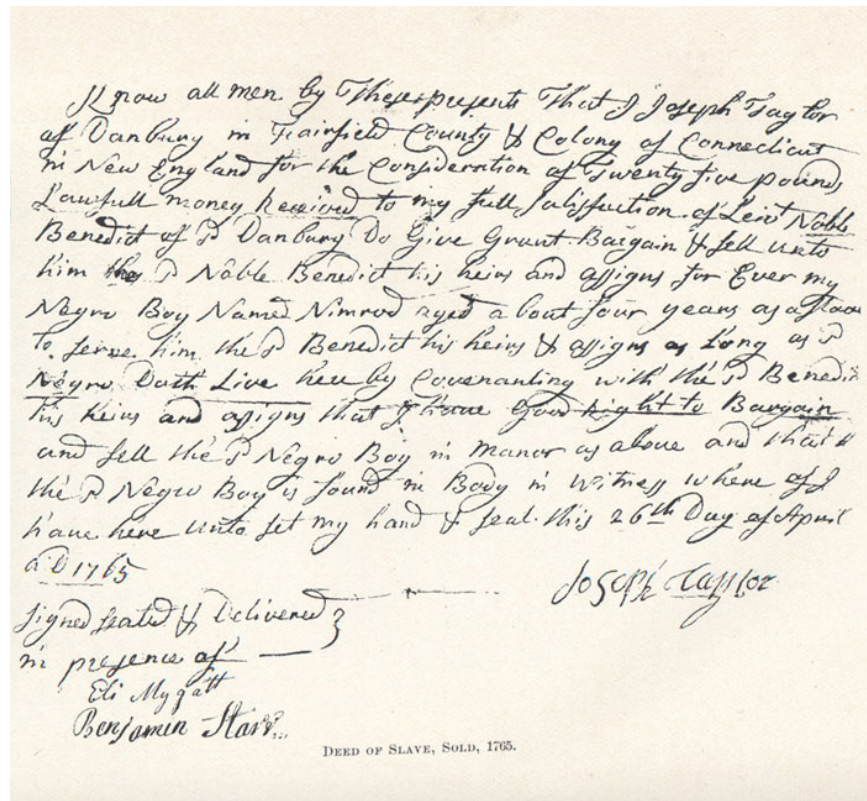 Know all men by These presents That I Joseph Taylor
of Danbury in Fairfield County & Colony of Connecticut
in New England for the Consideration of Twenty five pounds
Lawfull money Received to my full satisfaction of Leiut Noble
Benedict of sd Danbury Do Give Grant Bargain & sell unto
him the sd Noble Benedict his heirs and assigns for Ever my
Negro Boy Named Nimrod aged about four years as a slave
to serve him the sd Benedict his heirs & assigns as Long as sd
Negro Doth Live hereby Covenanting with the sd Benedict
his heirs and assigns that I have Good Right to Bargain
and sell the sd Negro Boy in Manor as above and that
the sd Negro Boy is sound in Body in Witness where of I
have here unto set my hand & seal this 26th Day of April
a:D 1765
Joseph Taylor
signed sealed & Delivered
in presence of
Eli Mygatt
Benjamin Starr
DEED OF SLAVE, SOLD, 1765.